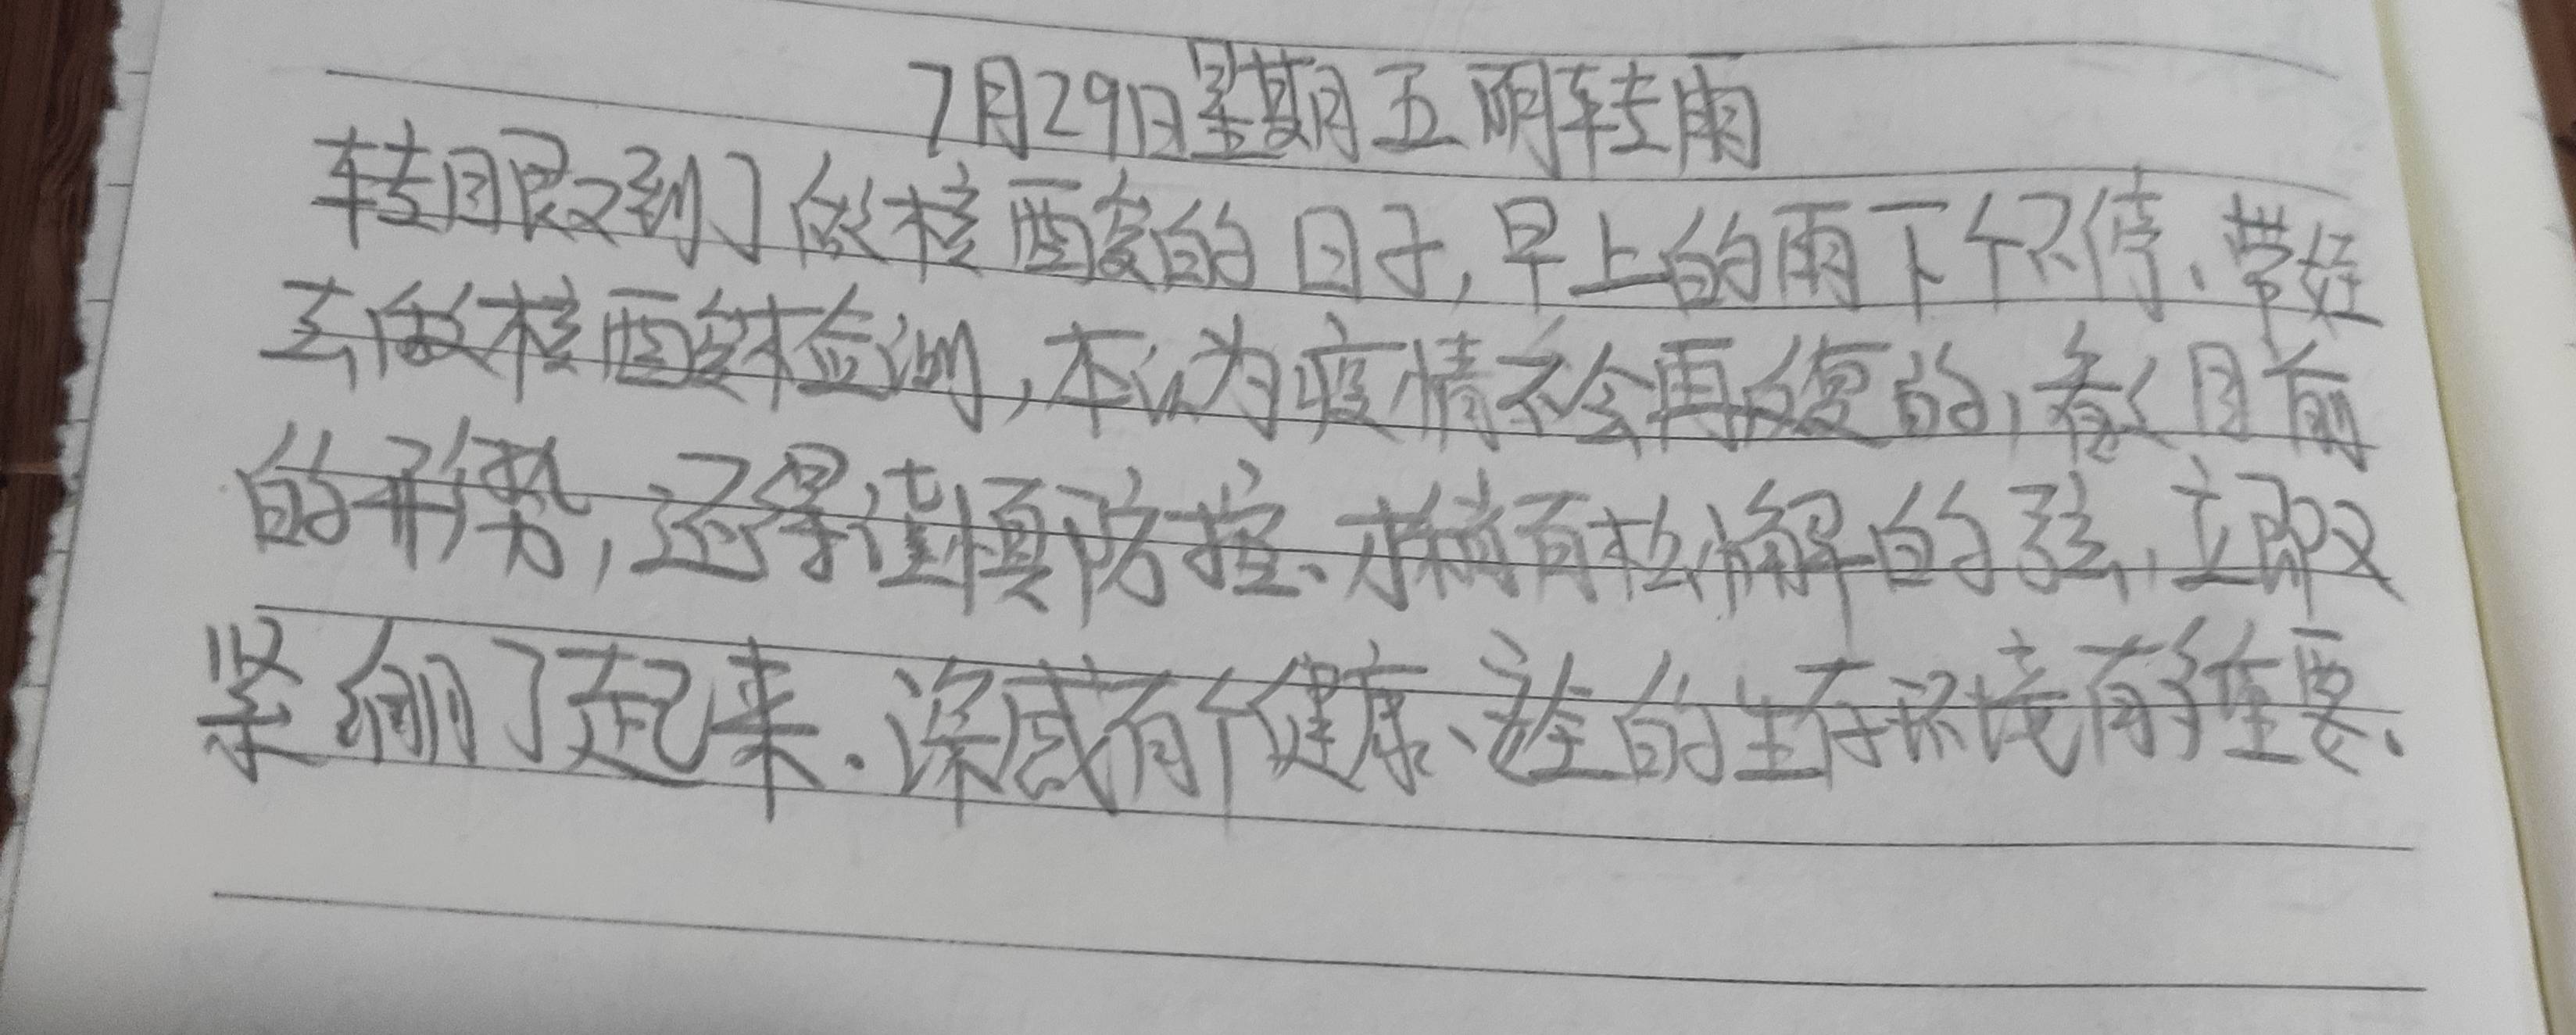 7月29日星期五 阴转雨
转眼又到了做核酸的日子,早上的雨下个不停、带好
去做核酸检测,本以为疫情不会再反复的,看目前
的形势,还得谨慎防控、才稍有松懈的弦,立即又
紧绷了起来.深感有个健康、安全的生存环境有多重要、